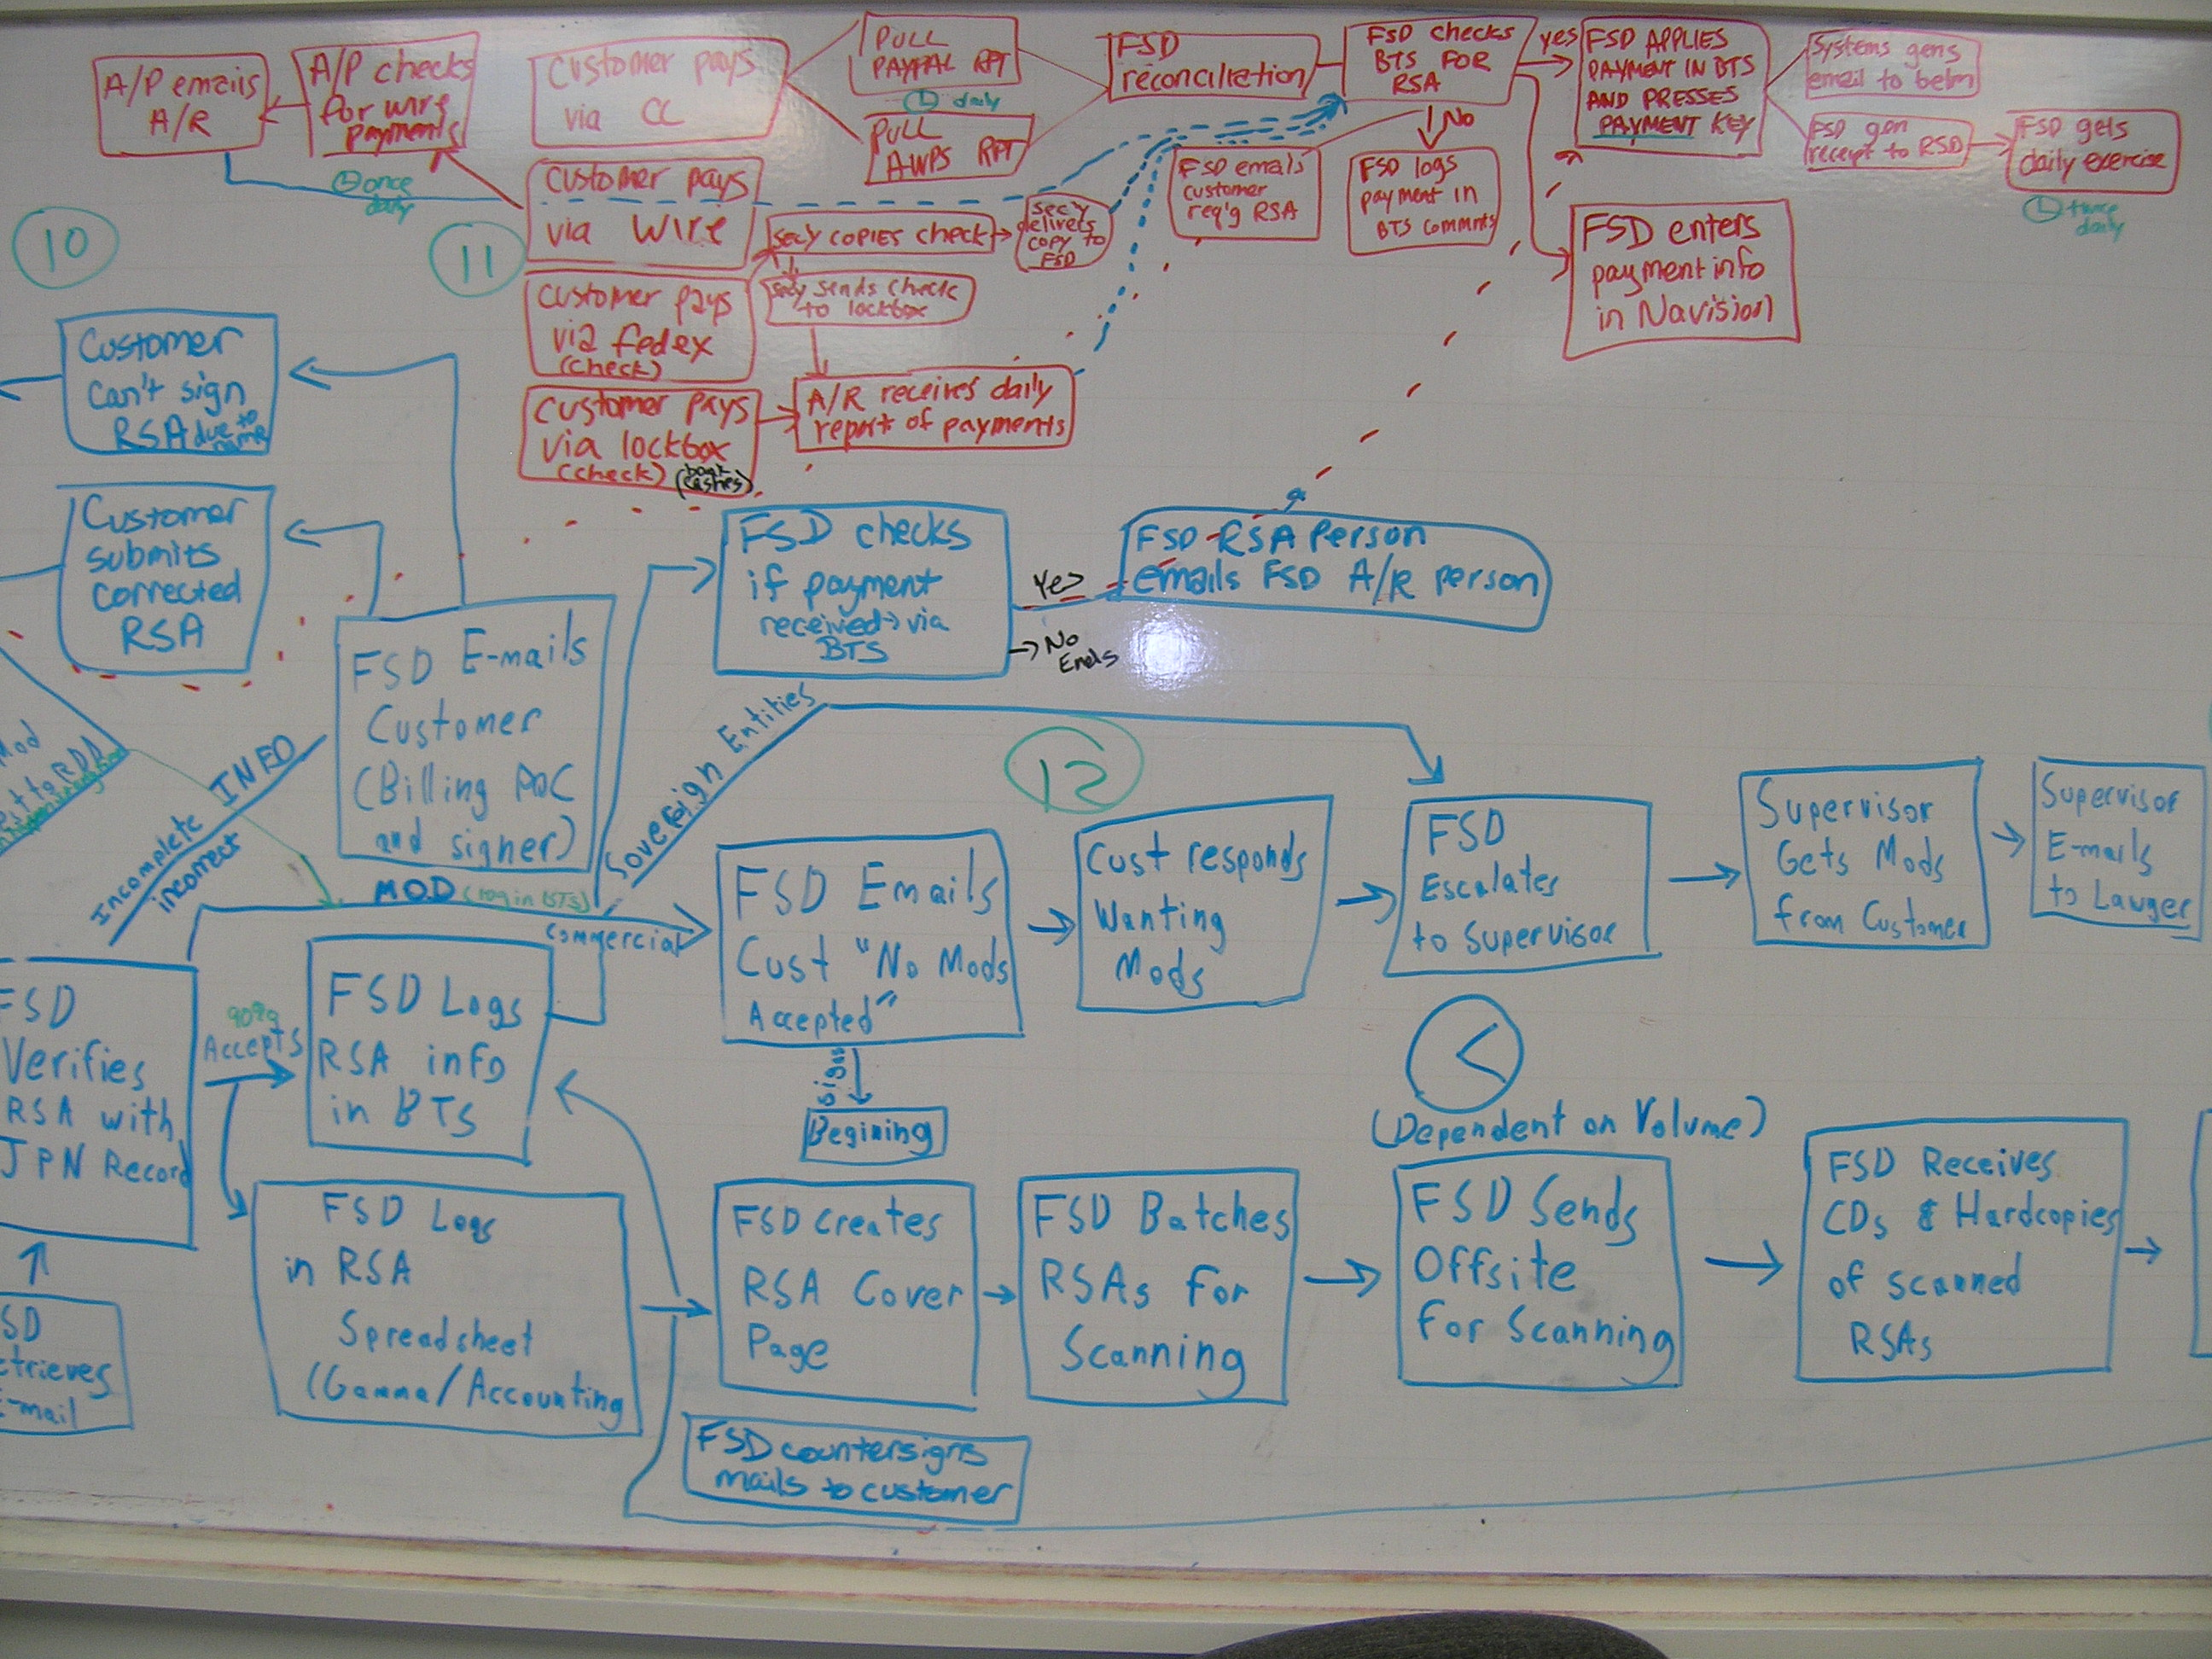 A/P emails
A/R
A/P checks
for wire
payments
once
daily
Customer pays
via CC
PULL
PAYPAL RPT
daily
PULL
AWPS RPT
FSD
reconciliation
FSD checks
BTS FOR
RSA
yes
No
FSD APPLIES
PAYMENT IN BTS
AND PRESSES
PAYMENT KEY
Systems gens
email to belm
FSD gen
receipt to RSD
FSD gets
daily exercise
twice
daily
10
11
Customer pays
via wire
Secy copies check
Secy
delivers
copy to
FSD
FSD emails
customer
req'g RSA
FSD logs
payment in
BTS commts
FSD enters
payment info
in Navision
Customer pays
via fedex
(check)
Secy sends check
to lockbox
Customer pays
via lockbox
(check)
(bank
cashes)
A/R receives daily
report of payments
Customer
can't sign
RSA due to
name
Customer
submits
corrected
RSA
FSD checks
if payment
received via
BTS
Yes
No
Ends
FSD RSA Person
emails FSD A/R person
FSD E-mails
Customer
(Billing POC
and signer)
Incomplete INFO
incorrect
Sovereign Entities
MOD (log in BTS)
Commercial
12
FSD Emails
Cust "No Mods
Accepted"
Signs
Begining
Cust responds
Wanting
Mods
FSD
Escalates
to Supervisor
Supervisor
Gets Mods
from Customer
Supervisor
E-mails
to Lawyer
FSD
Verifies
RSA with
JPN Record
90%
Accepts
FSD Logs
RSA info
in BTS
FSD Logs
in RSA
Spreadsheet
(Gamma/Accounting
SD
etrieves
E-mail
FSD Creates
RSA Cover
Page
FSD Batches
RSAs for
Scanning
(Dependent on Volume)
FSD Sends
Offsite
for Scanning
FSD Receives
CDs & Hardcopies
of scanned
RSAs
FSD countersigns
mails to customer